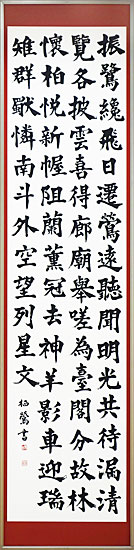 振鷺纔飛日遷鶯遠聽聞明光共待漏清
覽各披雲喜得廊廟舉嗟為臺閣分故林
懷柏悅新幄阻蘭薰冠去神羊影車迎瑞
雉群獨憐南斗外空望列星文
書